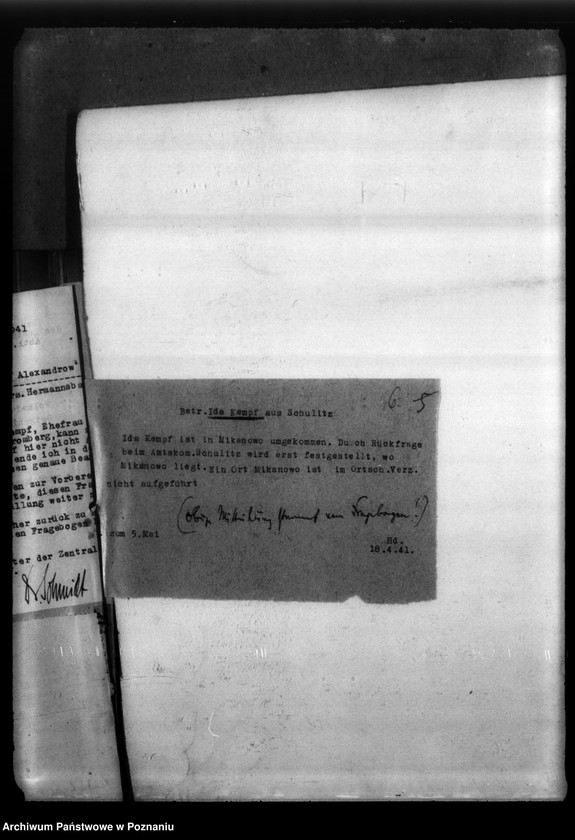 41
Alexandrow
rs. Hermannsba
mpf, Ehefrau
romberg, kann
f hier nicht
ende ich in d
en genaue Bea
en zur Vorbere
te, diesen Fra
llung weiter
her zurück zu
en Fragebogen
ter der Zentral
Dr. Schmidt
6. 5
Betr. Ida Kempf aus Schulitz
Ida Kempf ist in Mikanowo umgekommen. Durch Rückfrage
beim Amtskom. Schulitz wird erst festgestellt, wo
Mikanowo liegt. Ein Ort Mikanowo ist im Ortsch. Verz.
nicht aufgeführt
(Obige Mitteilung stammt vom Fragebogen!)
zum 5. Mai
Hd.
18.4.41.
Archiwum Państwowe w Poznaniu